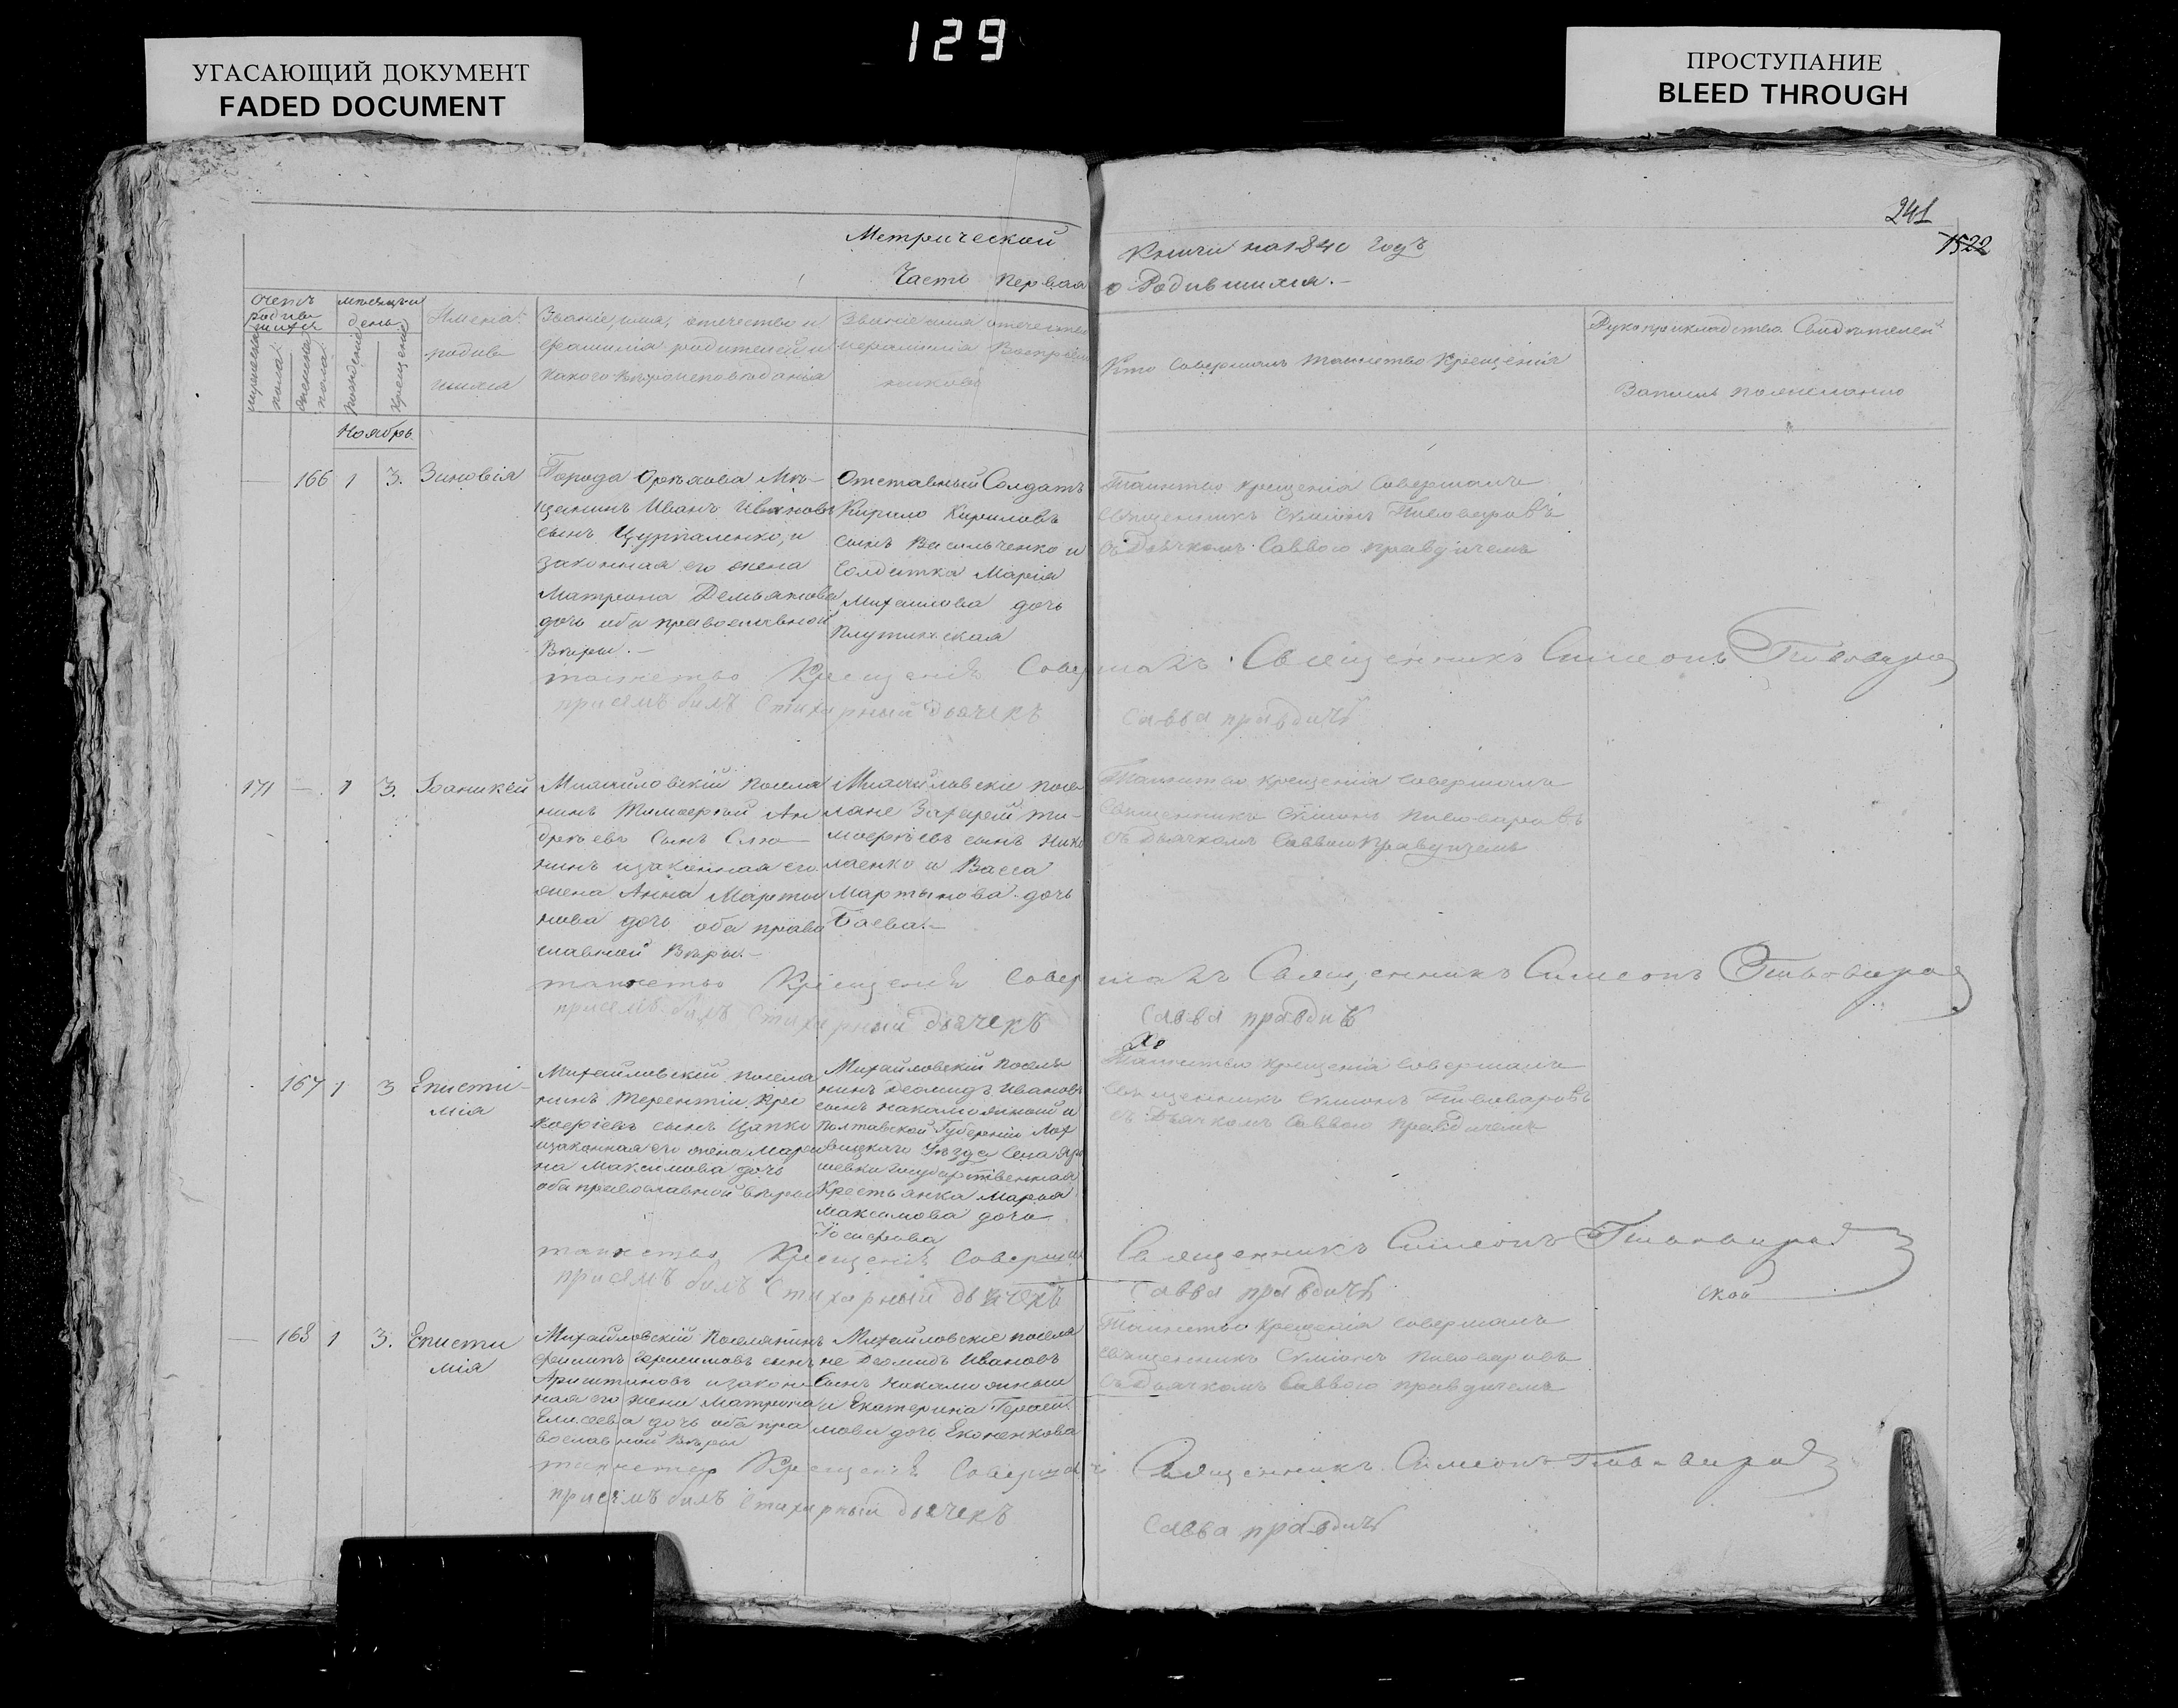 129
УГАСАЮЩИЙ ДОКУМЕНТ
FADED DOCUMENT
ПРОСТУПАНИЕ
BLEED THROUGH
241
1522
Метрической Книги на 1840 годъ
Часть Первая о Родившихся.
счетъ родившихся
мужеска пола
женска пола
месяцъ и день
рождения
крещения
Имена родившихся
Званіе, имя, отечество и
фамилія родителей, и
какого вероисповеданія
Званіе имя отечество
и фамилія Воспріем
никовъ
Кто Совершалъ таинство Крещенія
Рукоприкладство Свидетелей
Записи по желанию
Ноябрь
166 1 3. Зиновія
Города Орехова Ме-
щанинъ Иванъ Ивановъ
сынъ Цурпаленко, и
законная его жена
Матрона Демьянова
дочь оба православной
Веры.-
Отставный Солдатъ
Кирило Кириловъ
сынъ Васильченко и
Солдатка Марія
Михаилова дочь
Таинство крещенія Совершалъ
священникъ Симіонъ Пивоваровъ
съ Дьячкомъ Саввою Правдичемъ
таинство Крещенія Совершалъ Священникъ Симеонъ Пивоваровъ
присемъ билъ Стихарный дьячекъ Савва правдичъ
171 — 1 3. Іоаникій
Михайловскій поселя
нинъ Тимоерей Ан
дреевъ Сынъ
нинъ изаконная его
жена Анна Марты
нова дочь оба право
славной Веры.-
Михайловскіе посе
ляне Захарей Ти-
моерѣевъ сынъ Нико
лаенко и Васса
Мартынова дочь
Баева.-
Таинство крещенія совершалъ
Священникъ Симіонъ Пивоваровъ
съ Дьячкомъ Саввою Правдичемъ
таинство Крещенія Совершалъ Священникъ Симеонъ Пивоваровъ
присемъ билъ Стихарный дьячекъ Савва правдичъ
167 1 3 Еписти-
мія
Михайловскій посела
нинъ Терентій
сынъ Цапко
изаконная его жена Мари
на Максимова дочь
оба православной веры
Михайловскій Поселя
нинъ Деомидъ Ивановъ
сынъ и
Полтавской Губерніи Лох
вицкаго Уезда Села
Государственная
Крестьянка Марья
Максимова дочь
Таинство Крещенія Совершалъ
священникъ Симіонъ Пивоваровъ
съ Дьячкомъ Саввою Правдичемъ
таинство Крещенія Соверша Священникъ Симеонъ Пивоваровъ
присемъ билъ Стихарный дьячекъ Савва правдичъ
168 1 3. Еписти
мія
Михайловскій Поселянинъ
Герасимовъ сынъ
изакон
ная его жена Матрона
Елисеева дочь оба пра
вославной Веры
Михайловскіе поселя
не Деомидъ Ивановъ
Сынъ
и Екатерина Гераси
мова дочь Еконенкова
Таинство Крещенія совершалъ
священникъ Симіонъ Пивоваровъ
съ Дьячкомъ Саввою правдичемъ
таинство Крещенія Совершалъ Священникъ Симеонъ Пивоваровъ
присемъ билъ Стихарный дьячекъ Савва правдичъ